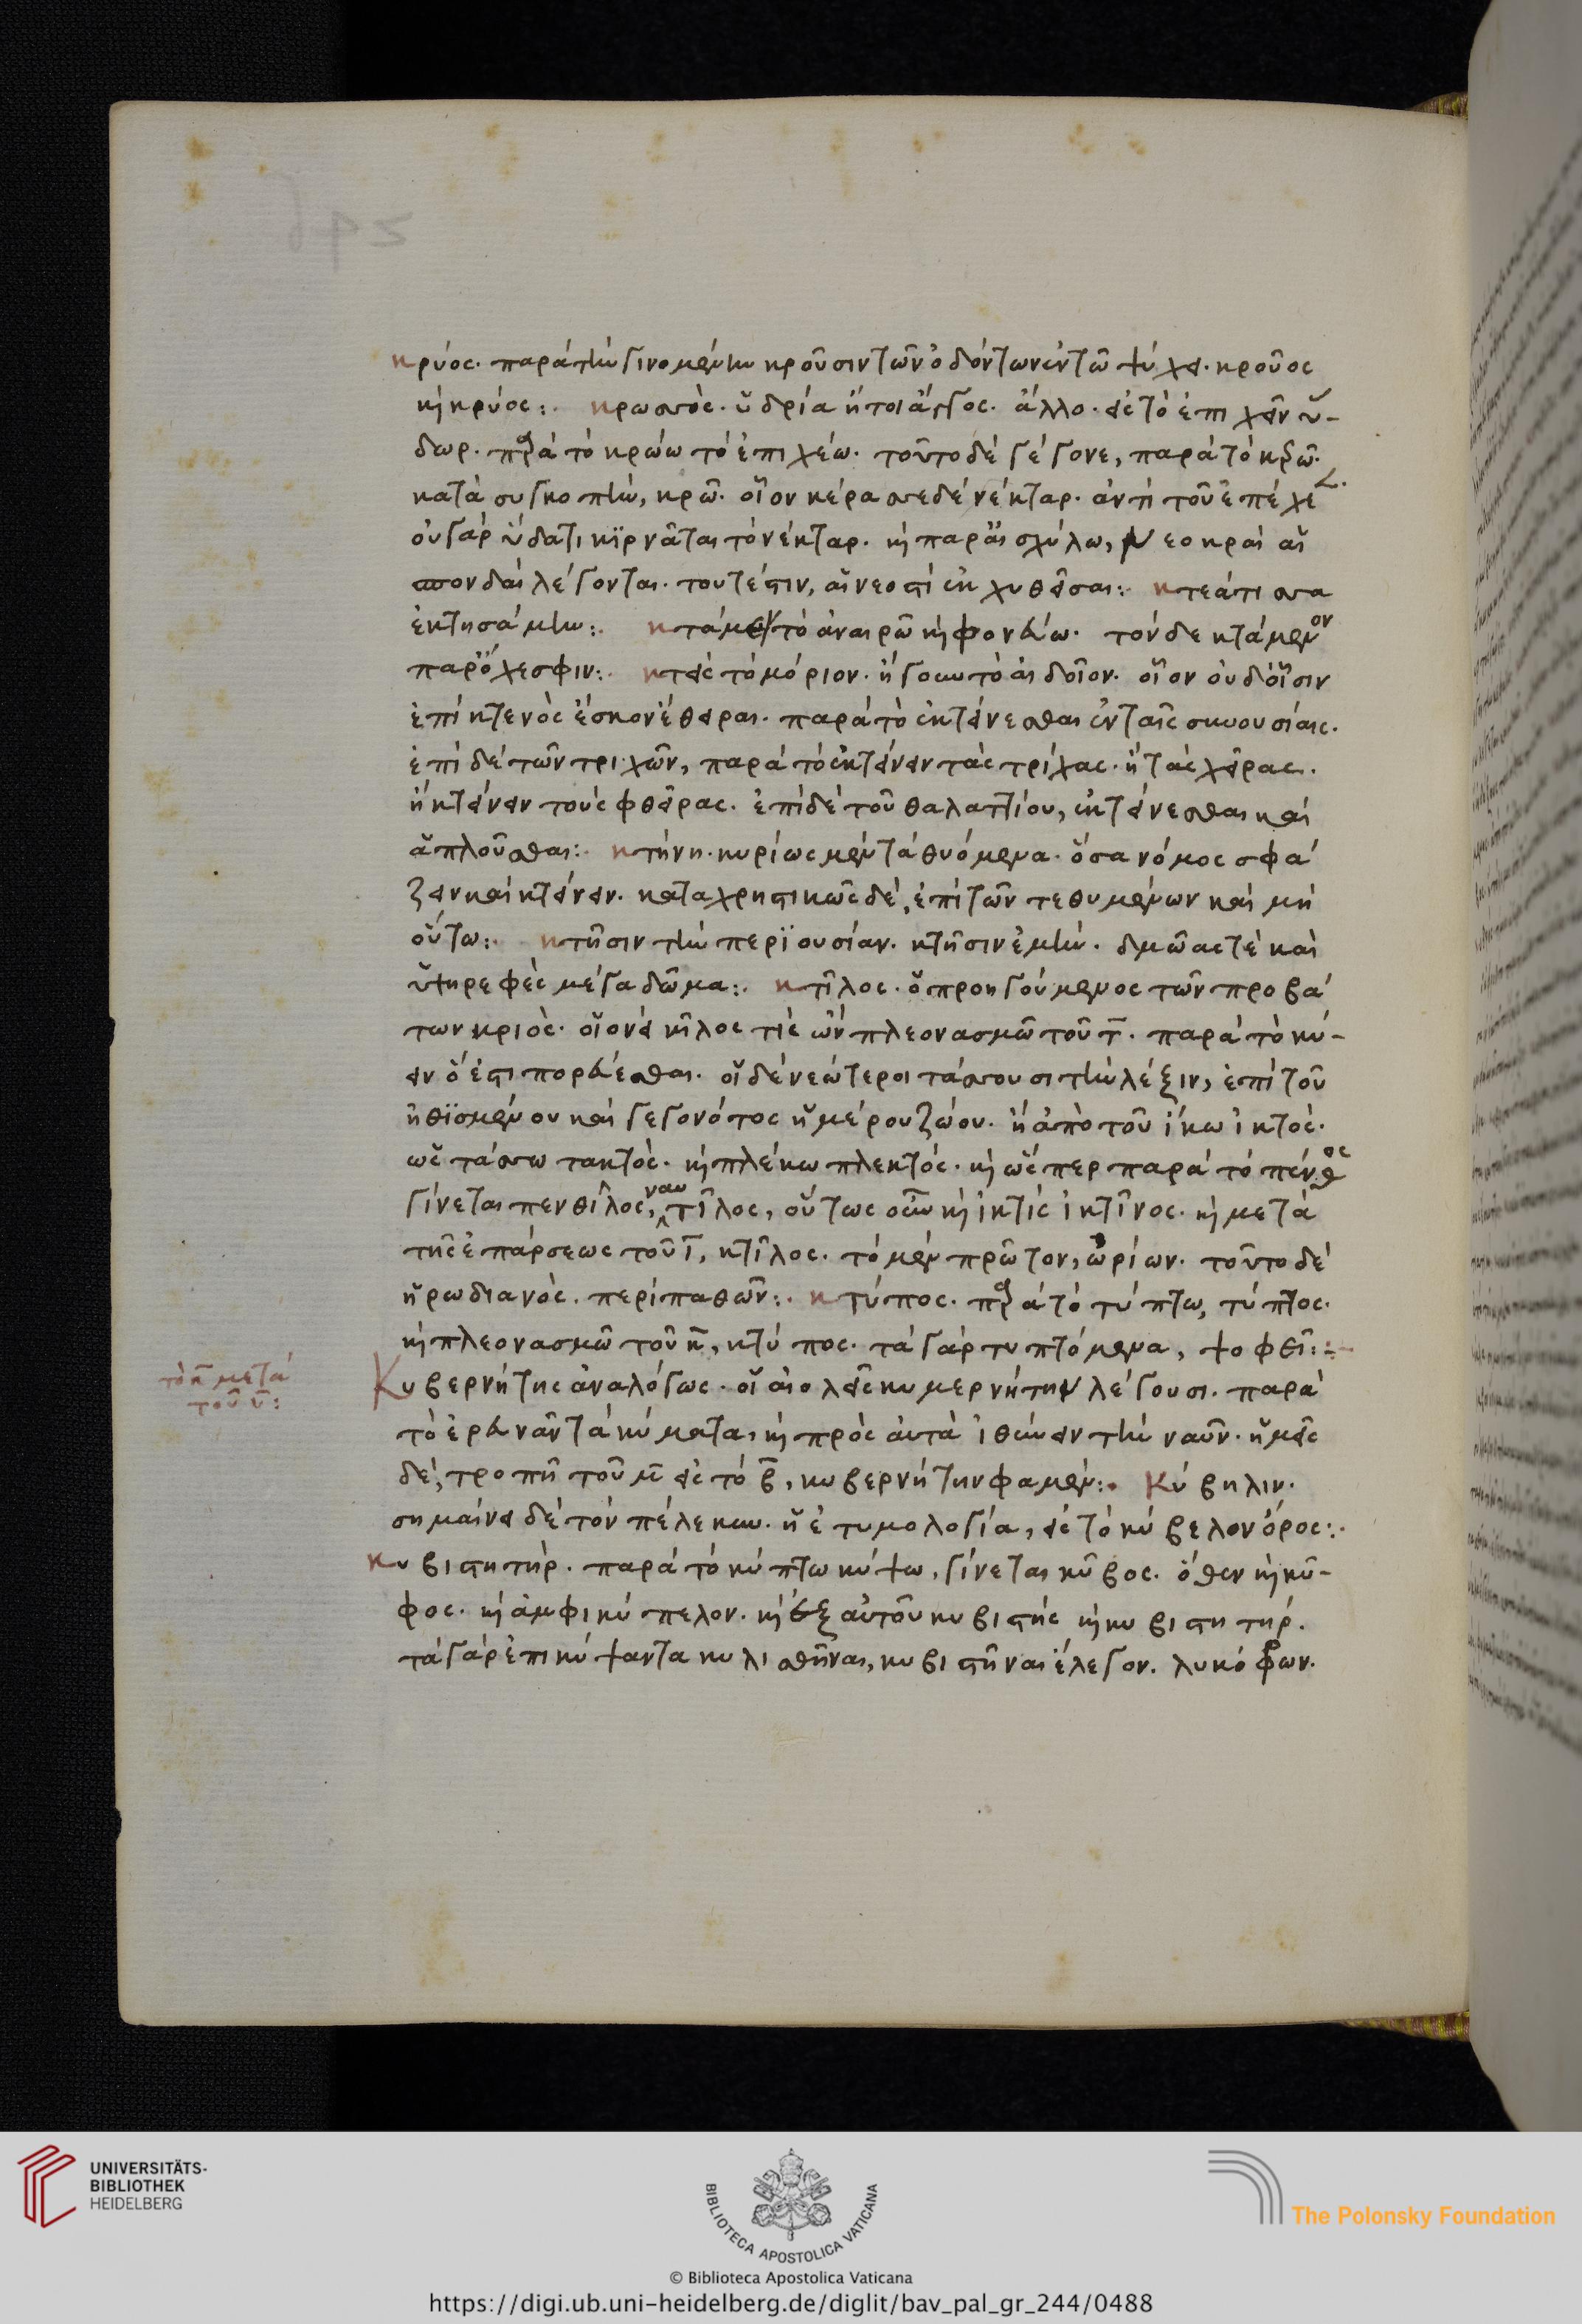 κρύος· παρὰ τὴν γινομένην κροῦσιν τῶν ὀδόντων ἐν τῶ ψύχει· κροῦος
κὶ κρύος:· κρωσσὸς· ὑδρία ἤτοι ἄγγος· ἄλλο· εἰς τὸ ἐπιχεῖν ὕ-
δωρ· παρὰ τὸ κρώω τὸ ἐπιχέω· τοῦτο δὲ γέγονε, παρὰ τὸ
κατὰ συγκοπὴν, κρῶ· οἷον κέρασσε δὲ νέκταρ· ἀντὶ τοῦ ἐπέχει
οὐ γὰρ ὕδατι κϊρνᾶται τὸ νέκταρ· κὶ παρ' αἰσχύλω, νεοκραὶ αἱ
σπονδαὶ λέγονται· τουτέστιν, αἱ νεοστὶ ἐκχυθεῖσαι:· κτεάτισσα
ἐκτησάμην:· κτάμεν τὸ ἀναιρῶ κὶ φονεύω· τὸν δε κτάμενον
παρ' ὄχεσφιν:· κτεὶς τὸ μόριον· ἤγουν τὸ αἰδοῖον· οἷον οὐδ' ὅσιν
ἐπὶ κτενὸς ἔσκον ἔθειραι· παρὰ τὸ ἐκτείνεσθαι ἐν ταῖς συνουσίαις·
ἐπὶ δὲ τῶν τριχῶν, παρὰ τὸ ἐκτείνειν τὰς τρίχας· ἢ τὰς χεῖρας·
ἢ κτείνειν τοὺς φθεῖρας· ἐπὶ δὲ τοῦ θαλαττίου, ἐκτείνεσθαι καὶ
ἁπλοῦσθαι:· κτήνη· κυρίως μὲν τὰ θυόμενα· ὅσα νόμος σφά
ζειν καὶ κτείνειν· καταχρηστικῶς δὲ, ἐπὶ τῶν τεθυμένων καὶ μὴ
οὕτω:· κτῆσιν τὴν περϊουσίαν· κτῆσιν ἐμὴν· δμῶας τὲ καὶ
ὑψηρεφὲς μέγα δῶμα:· κτῖλος· ὁ προηγούμενος τῶν προβά
των κριὸς· οἱονεὶ κῖλος τὶς ὢν πλεονασμῶ τοῦ τ̄· παρὰ τὸ κύ-
ειν ὅ ἐστι πορεύεσθαι· οἱ δὲ νεώτεροι τάσσουσι τὴν λέξιν, ἐπὶ τοῦ
ἠθϊσμένου καὶ γεγονότος ἡμέρου ζώου· ἢ ἀπὸ τοῦ ἵκω ἰκτὸς·
ὡς τάσσω τακτὸς· κὶ πλέκω πλεκτός· κὶ ὥσπερ παρὰ τὸ πένθος
γίνεται πενθῖλος, ναυτῖλος, οὕτως οὖν κὶ ἰκτὶς ἰκτῖνος· κὶ μετὰ
τῆς ἐπάρσεως τοῦ ῑ, κτῖλος· τὸ μὲν πρῶτον, ὠρίων· τοῦτο δὲ
ἡρωδιανὸς· περὶ παθῶν:· κτύπος· παρὰ τὸ τύπτω, τύπτος·
κὶ πλεονασμῶ τοῦ κ̄, κτύπος· τὰ γὰρ τυπτόμενα, ψοφεῖ:·
τὸ κ̄ μετὰ
τοῦ ῡ:
Κυβερνήτης ἀναλόγως· οἱ αἰολεῖς κυμερνήτην λέγουσι· παρὰ
τὸ ἐρευνᾶν τὰ κύματα, κὶ πρὸς αὐτὰ ἰθύνειν τὴν ναῦν· ἡμεῖς
δὲ, τροπῆ τοῦ μ̄ εἰς τὸ β̄, κυβερνήτην φαμέν:· Κύβηλιν·
σημαίνει δὲ τὸν πέλεκυν· ἡ ἐτυμολογία, εἰς τὸ κύβελον ὄρος:·
κυβιστητὴρ· παρὰ τὸ κύπτω κύψω, γίνεται κῦβος· ὅθεν κὶ κῦ-
φος· κὶ ἀμφικύπελον· κὶ ἐξ αὐτοῦ κυβιστὴς κὶ κυβιστητήρ·
τὰ γὰρ ἐπικύψαντα κυλισθῆναι, κυβιστῆναι ἔλεγον· λυκόφρων·
UNIVERSITÄTS-
BIBLIOTHEK
HEIDELBERG
BIBLIOTECA APOSTOLICA VATICANA
The Polonsky Foundation
© Biblioteca Apostolica Vaticana
https://digi.ub.uni-heidelberg.de/diglit/bav_pal_gr_244/0488